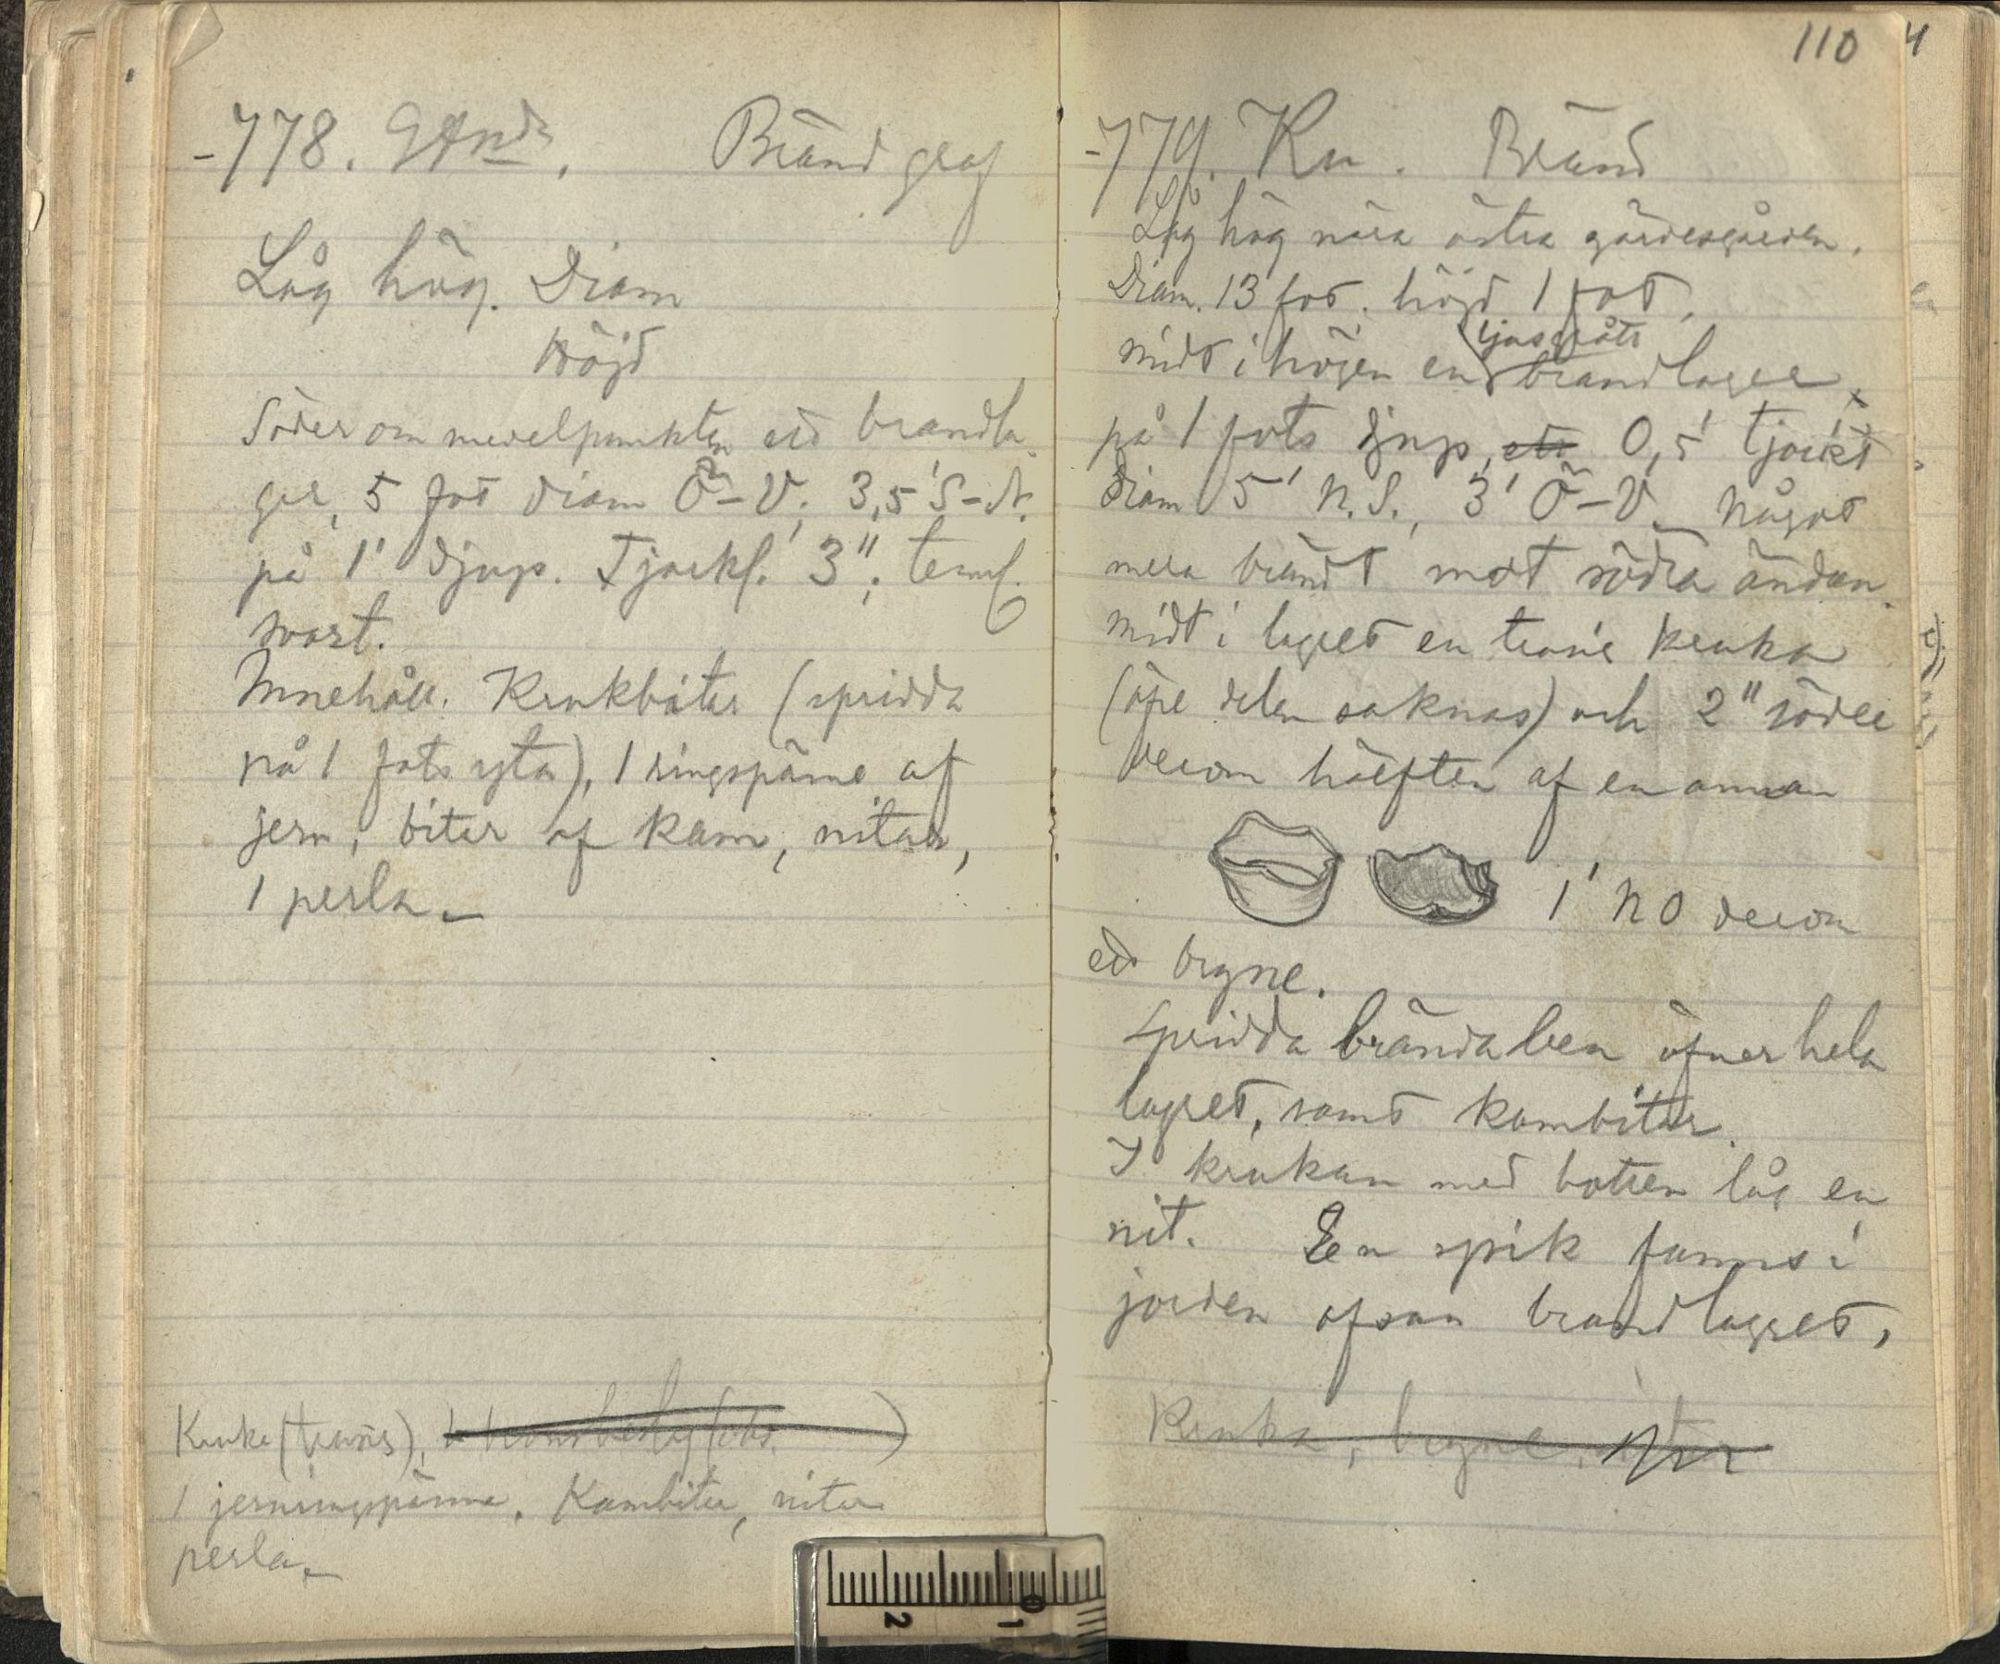 -778. GAnds. Bränd graf
Låg hög. Diam
Höjd
Söder om medelpunkten ett brandla
ger, 5 fot diam Ö-V; 3,5' S-N.
på 1' djup. Tjockl. 3"; teml.
svart.
Innehåll. Krukbitar (spridda
på 1 fots yta), 1 ringspänne af
jern, bitar af kam, nitar,
1 perla_
Kruka (trasig),
1 jernringspänne. Kambitar, nitar
perla_
110 4
-779. Kru. Bränd
Låg hög nära östra gärdesgården.
Diam. 13 fot. höjd 1 fot.
ljusgrått
midt i högen en brandlager
på 1 fots djup, ett 0,5' tjockt
Diam 5' N.S., 3' Ö-V_ Något
mera brändt mot södra ändan.
midt i lagret en trasig kruka
(öfre delen saknas) och 2" söder
derom hälften af en annan
1' NO derom
ett bryne.
Spridda brända ben öfver hela
lagret, samt kambitar.
I krukan med botten låg en
nit. En spik fanns i
jorden ofvan brandlagret,
Kruka, bryne,